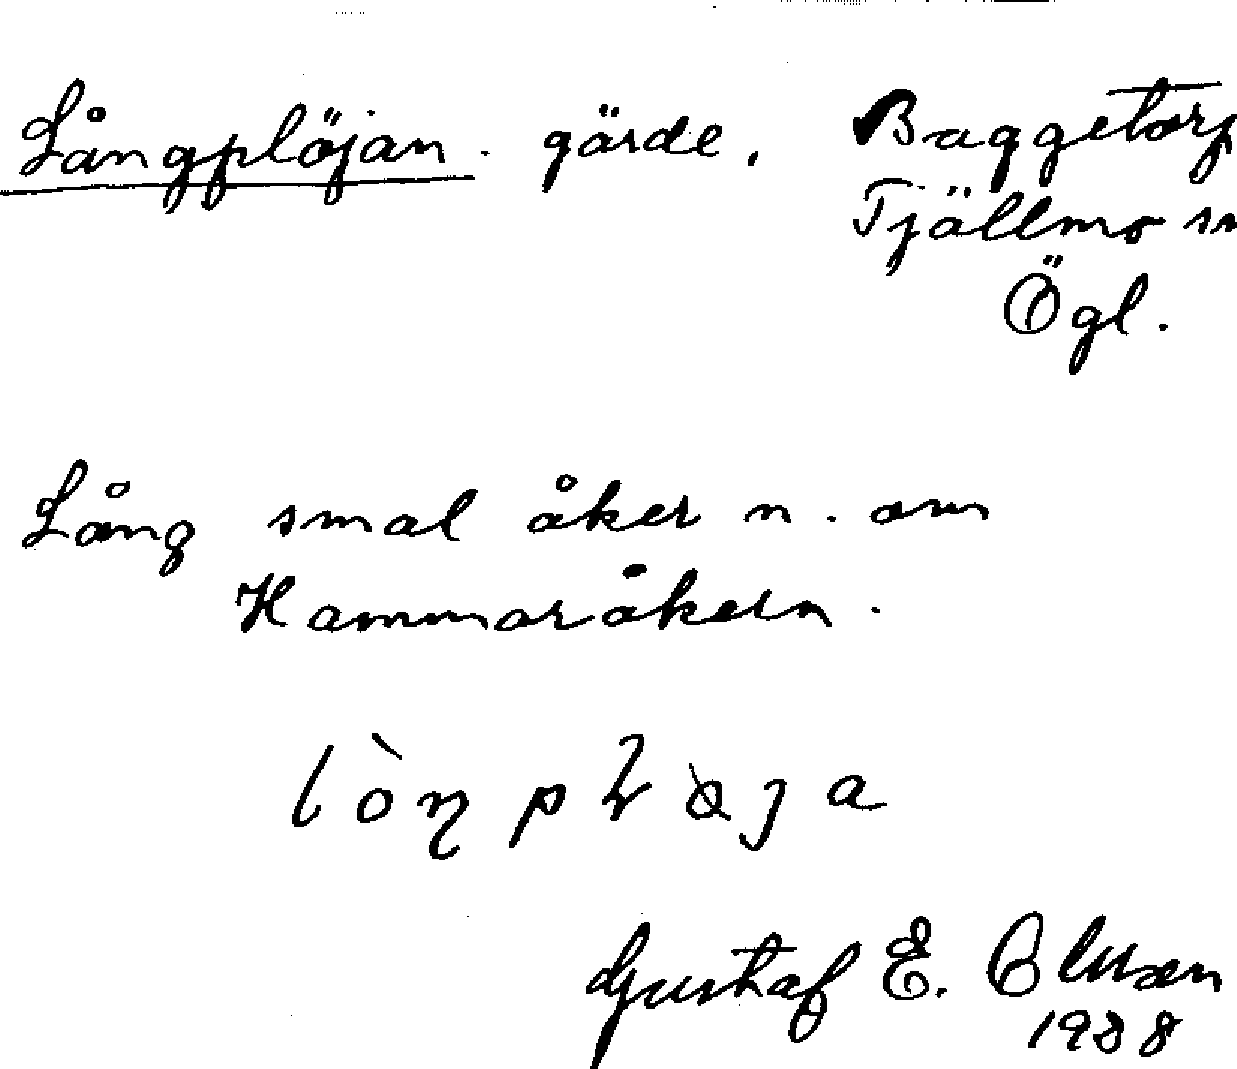 Långplöjan. gärde, Baggetorp
Tjällmo sn
Ögl.
Lång smal åker n. om
Hammaråkern.
Gustaf E. Olsson
1938